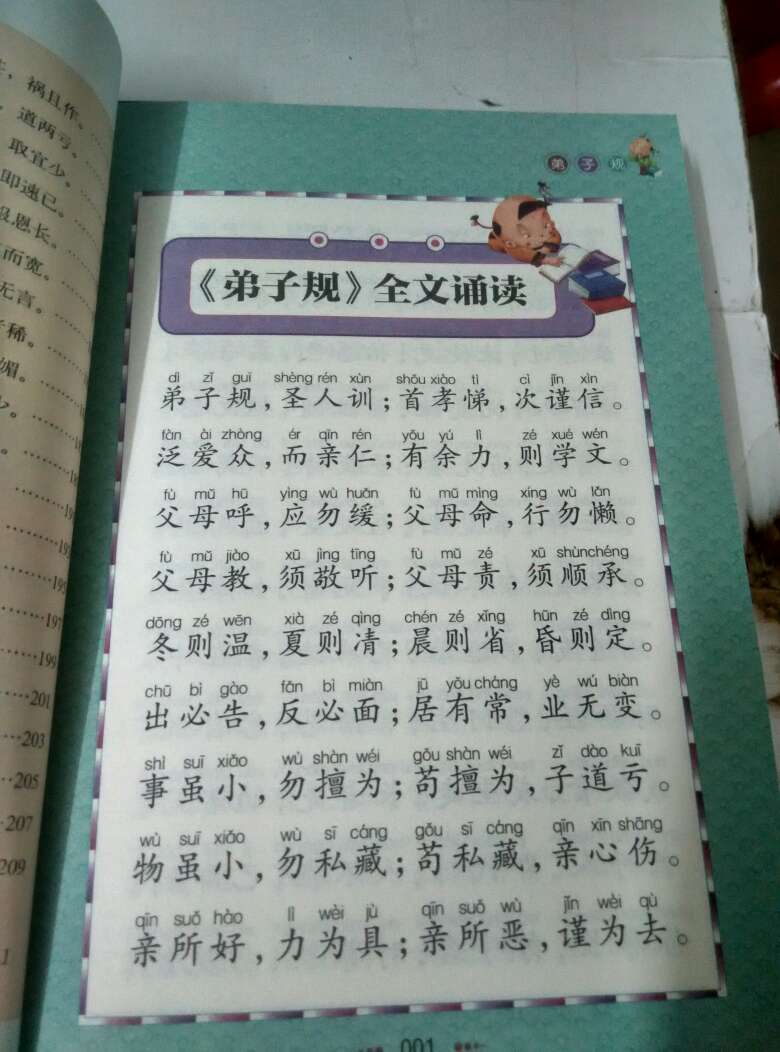 祸且作。……
道两亏。
取宜少。
即速已。
恩长。
而宽。
无言。
稀。
媚。
197
199
201
203
205
207
209
弟子规
《弟子规》全文诵读
dì zǐ guī shèng rén xùn shǒu xiào tì cì jǐn xìn
弟子规，圣人训；首孝悌，次谨信。
fàn ài zhòng ér qīn rén yǒu yú lì zé xué wén
泛爱众，而亲仁；有余力，则学文。
fù mǔ hū yìng wù huǎn fù mǔ mìng xíng wù lǎn
父母呼，应勿缓；父母命，行勿懒。
fù mǔ jiào xū jìng tīng fù mǔ zé xū shùn chéng
父母教，须敬听；父母责，须顺承。
dōng zé wēn xià zé qìng chén zé xǐng hūn zé dìng
冬则温，夏则凊；晨则省，昏则定。
chū bì gào fǎn bì miàn jū yǒu cháng yè wú biàn
出必告，反必面；居有常，业无变。
shì suī xiǎo wù shàn wéi gǒu shàn wéi zǐ dào kuī
事虽小，勿擅为；苟擅为，子道亏。
wù suī xiǎo wù sī cáng gǒu sī cáng qīn xīn shāng
物虽小，勿私藏；苟私藏，亲心伤。
qīn suǒ hào lì wèi jù qīn suǒ wù jǐn wèi qù
亲所好，力为具；亲所恶，谨为去。
001